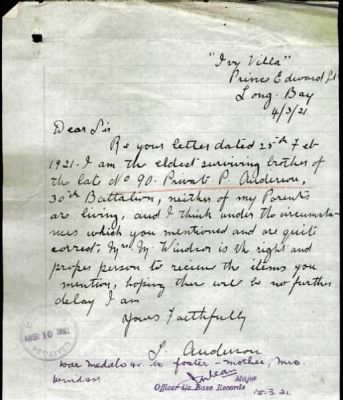 "Ivy Villa"
Prince Edward St
Long Bay
4/3/21
Dear Sir
Re your letter dated 25th Feb
1921. I am the eldest surviving brother of
the late No 90. Private P. Anderson,
30th Battalion, neither of my Parents
are living, and I think under the circumstan-
ces which you mentioned and are quite
correct, Mrs M Windsor is the right and
proper person to receive the items you
mention, hoping ther will be no further
delay I am
Yours Faithfully
Anderson
War medals &c to foster-mother, Mrs
Windsor
Major
Officer i/c Base Records
15.3.21.